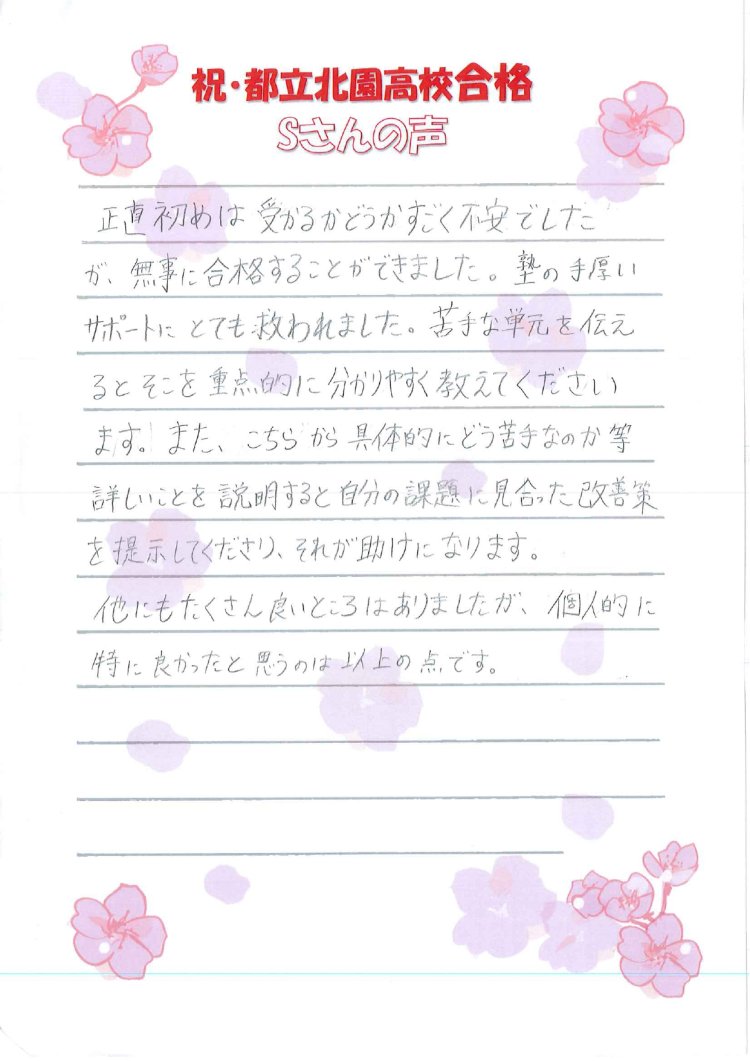 祝・都立北園高校合格
Sさんの声
正直初めは受かるかどうかすごく不安でした
が、無事に合格することができました。塾の手厚い
サポートにとても救われました。苦手な単元を伝え
るとそこを重点的に分かりやすく教えてください
ます。また、こちらから具体的にどう苦手なのか等
詳しいことを説明すると自分の課題に見合った改善策
を提示してくださり、それが助けになります。
他にもたくさん良いところはありましたが、個人的に
特に良かったと思うのは以上の点です。